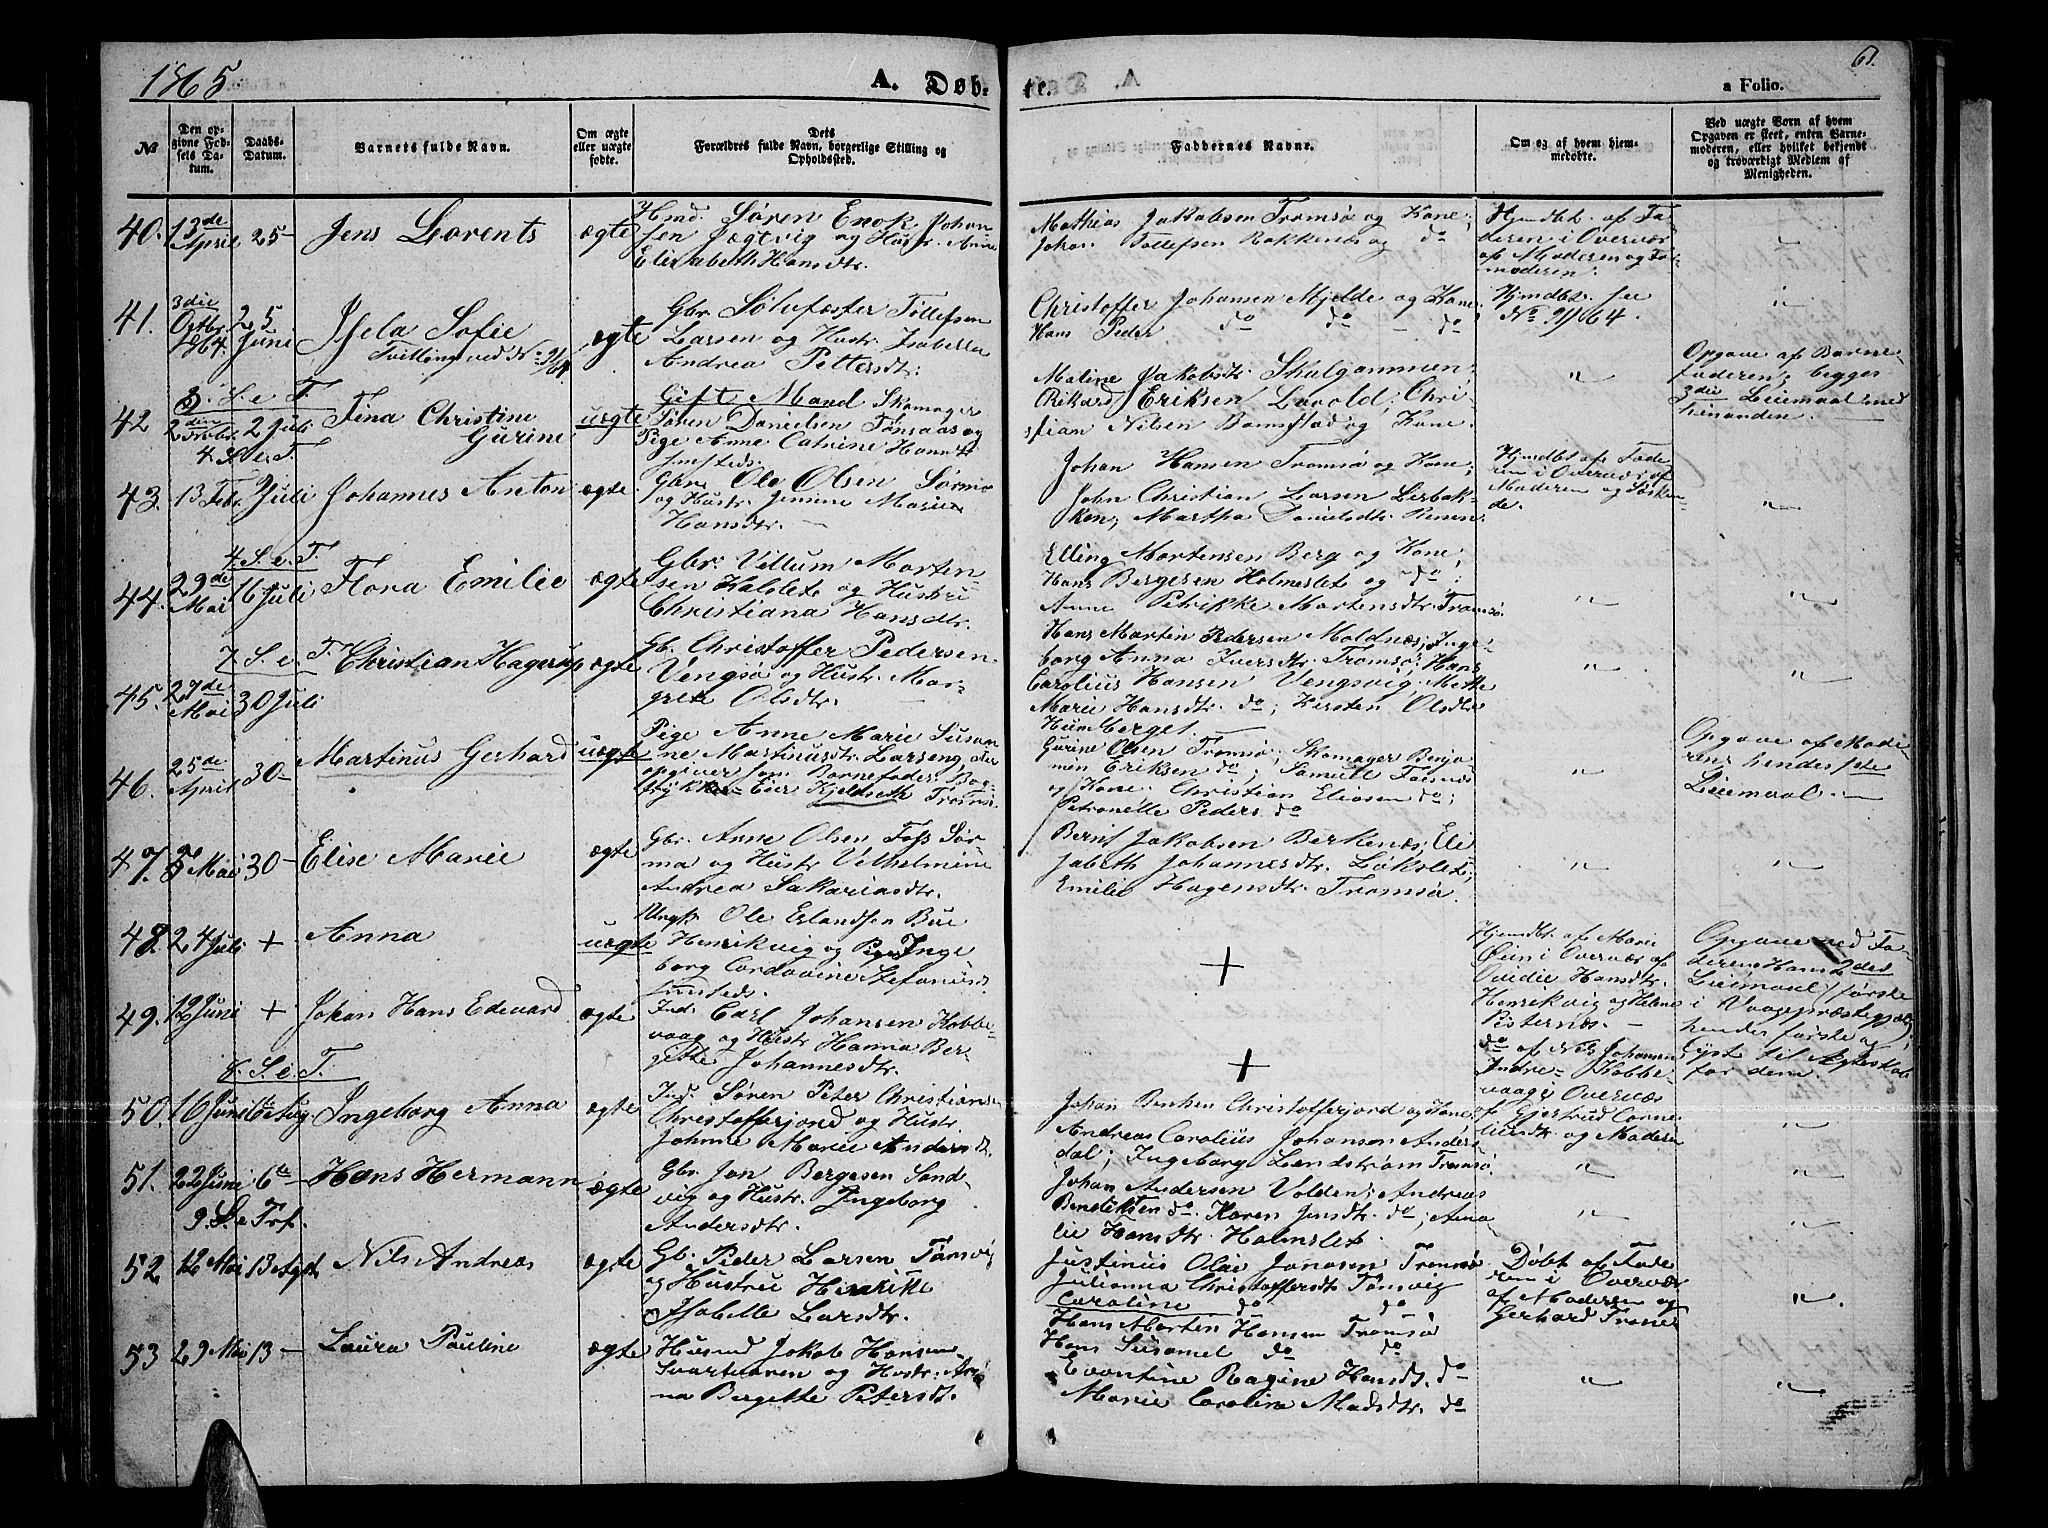 1865
A. Døb-
te.
a Folio.
61.
No
Den op-
givne Fød-
sels Da-
tum.
Daabs-
Datum.
Barnets fulde Navn.
Om ægte
eller uægte
fødte.
Dets
Forældres fulde Navn, borgerlige Stilling og
Opholdssted.
Faddernes Navne.
Om og af hvem hjem-
medøbte.
Ved uægte Børn af hvem
Opgaven er skeet, enten Barne-
moderen, eller hvilket bekjendt
og troværdigt Medlem af
Menigheden.
40. 13de April 25 - Jens Lorents ægte
Hmd. Søren Enok Johan
sen Jægtvig og Hustr. Anne
Elisabeth Hansdtr.
Mathias Jakobsen Tromsø og Kone;
Johan Tollefsen Bakkenes og do
Hjmdbt. af Fa-
deren i Overvær
af Moderen og Far-
moderen.
41. 3die Octbr. 1864. 25 Juni Isela Sofie
Tvilling ved No 91/64.
ægte
Gbr. Sølvfæster Tollefsen
Larsen og Hustr. Isabella
Andrea Pettersdtr.
Christoffer Johansen Mjelde og Kone.
Hans Peder do do - do
Hjmdbt. see
No 91/64.
3. S. e. T.
42 2den Novbr. 2 Juli Tina Christine
Gurine
uægte
Gift Mand Skomager
Søren Danielsen Tønsaas og
Pige Anne Catrine Hansdtr
smsteds.
Maline Jakobsdtr. Skulgammen;
Rikard Eriksen Lavold; Chri-
stian Nilsen Bomstad og Kone.
Opgave af Barne-
faderen; begges
3die Leiemaal med
hinanden.
4. S. e. T.
43. 13 Febr. Juli Johannes Anton ægte
Gbr. Ole Olsen Sørma
og Hustr. Jennine Marie
Hansdtr.
Johan Hansen Tromsø og Kone;
John Christian Larsen Lirbak-
ken; Martha Danielsdtr. Renen
Hjmdbt af Fade
ren i Overvær af
Moderen og Søsken
de.
4. S. e. T.
44. 29de Mai 16 Juli Flora Emilie ægte
Gbr. Villum Morten-
sen Halslet og Hustru
Christiana Hansdtr.
Elling Mortensen Berg og Kone;
Hans Bergesen Holmeslet og do;
Anne Petrikke Mortensdtr. Tromsø.
7. S. e. T.
45. 27de Mai 30 Juli Christian Hagerup ægte
Gb. Christoffer Pedersen
Vengsø og Hustr. Mar-
grete Olsdtr.
Hans Martin Pedersen Moldnæs; Inge-
borg Anna Iversdtr. Tromsø; Hans
Carolius Hansen Vengsvig; Mette
Marie Hansdtr. do; Kirsten Olsdtr
Humberget.
46. 25de April 30 - Martinus Gerhard uægte
Pige Anne Marie Susan
ne Martinusdtr. Larseng, der
opgiver som Barnefader: Bog-
trykker-Eier Kjeldseth Tromsø.
Gurine Olsen Tromsø; Skomager Benja-
min Eriksen do; Samuel Tosnæs
og Kone; Christian Eliasen do;
Petronelle Peders. do
Opgave af Mode-
ren; hendes 1ste
Leiemaal.
47. 5 Mai 30 - Elise Marie ægte
Gbr. Arne Olsen Foss Sør-
ma og Hustr. Vilhelmine
Andrea Sakariasdtr.
Bernt Jakobsen Berkenæs; Eli
sabeth Johannesdtr. Løkslet;
Emilie Hagensdtr. Tromsø.
48. 24 Juli + Anna uægte
Ungk. Ole Erlandsen Bue
Henrikvig og Pige Inge
borg Cordovine Stefanusd.
smsteds.
+
Hjmdbt. af Marie
Øien i Overvær af
Ovidie Hansdtr.
Henrikvig og Helene
Risternæs.
Opgave ved Fa-
deren; Hans 2det
Leiemaal (første
i Vaagepræstegjæld)
hendes første og
lyst til Ægteskab
for dem.
49. 12 Juni + Johan Hans Edevard ægte
Ind. Carl Johansen Kobbe-
vaag og Hustr. Hanna Ber-
gitte Johannesdtr.
+
do af Nils Johansen
Indre-Kobbe-
vaag i Overvær
af Gjertrud Corne-
liusdtr. og Moderen
8. S. e. T.
50. 16 Juni 6te Aug. Ingeborg Anna ægte
Ind. Søren Peter Christians
Christofferjord og Hustr.
Johanne Marie Andersd.
Johan Bentsen Christofferjord og Kone;
Andreas Carolius Johansen Anders-
dal; Ingeborg Lendstrøm Tromsø.
51. 22 Juni 6te Hans Hermann ægte
Gbr. Jon Bergesen Sand-
vig og Hustr. Ingeborg
Andersdtr.
Johan Andersen Volden; Andreas
Bendiktsen do. Karen Jensdtr. do; Ama
lie Hansdtr. Holmslet.
9. S. e. Trf.
52. 12 Mai 13 Agst. Nils Andreas ægte
Gb. Peder Larsen Tønsvig
og Hustru Henrikke
Isabelle Larsdtr.
Justinus Olai Jonasen Tromsø
Julianna Christoffersdtr Tønsvig
Caroline do do
Døbt af Fade
ren i Overvær
af Moderen og
Gerhard Trones
53 29 Mai 13 - Laura Pauline ægte
Husmd Jakob Hansen
Svartnæren og Hustr. An-
na Bergitte Petersdt.
Hans Morten Hansen Tromsø
Hans Susamel do do
Evontine Ragine Hansdt. do
Marie Carolina Madsdtr. do